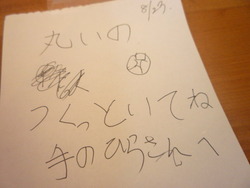 8/29.
丸いの
つくっといてね
手のひらさんへ